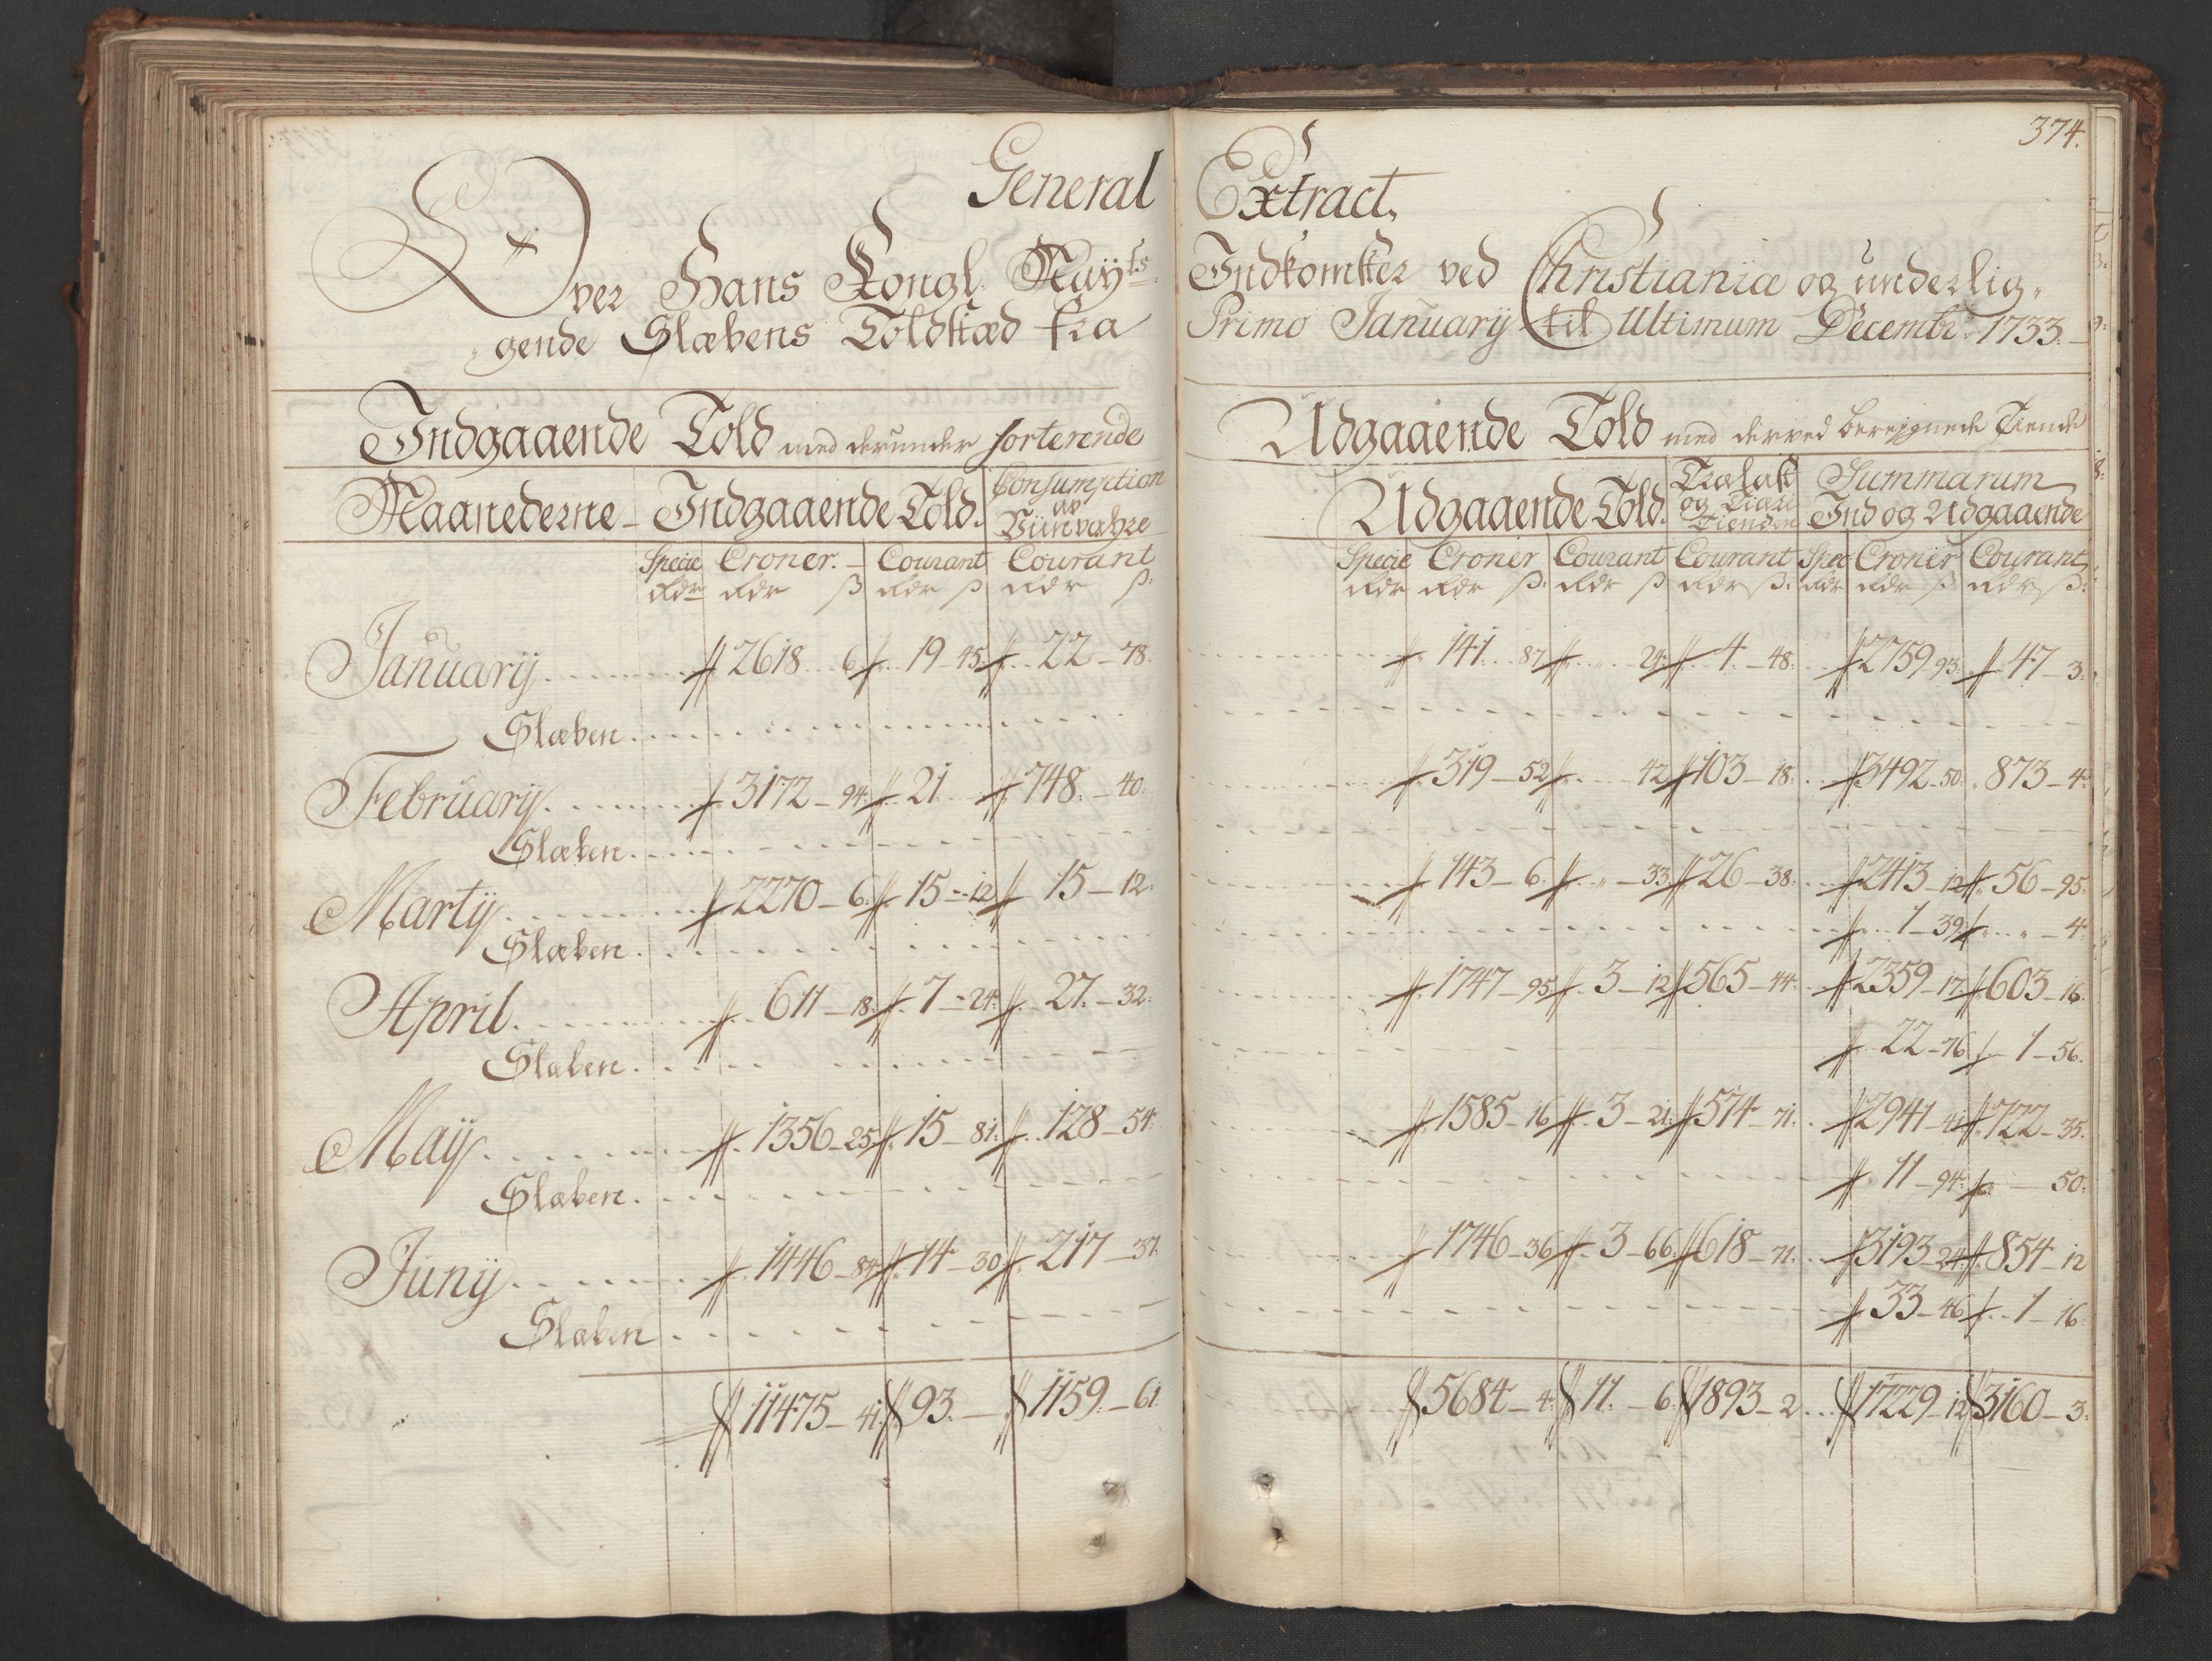 374.
General Extract,
Over Hans Kongl. Mayts. Indkomster ved Christianiæ og underlig-
gende Slæbens Toldstæd fra Primo Januarij til Ultimum Decembr. 1733.
Indgaaende Told med derunder sorterende Udgaaende Told med derved beregnede Tiende
Maanederne Indgaaende Told. Consumption av Viinvahre Udgaaende Told. Trælast og Tiære Tienden Summarum Ind og Udgaaende
Specie Croner. Courant Courant Specie Croner Courant Courant Spec Croner Courant
Rdr Rdr ß Rdr ß Rdr ß: Rdr Rdr ß: Rdr ß Rdr ß: Rdr Rdr ß Rdr ß:
Januarij 2618 6 19 45 22 78. 141 87 24 4 48: 2759 93 47 3:
Slæben
Februarij 3172 94 21 748 40. 319 52 42 103 18: 3492 50 873 4
Slæben
Martij 2270 6 15 12 15 12. 143 6 33 26 38: 2413 12 56 95.
Slæben 1 39 4
April 611 18 7 24 27 32. 1747 95 3 12 565 44. 2359 17 603 16.
Slæben 22 76 1 56.
Maij 1356 25 15 81 128 54. 1585 16 3 21 574 71. 2941 41 722 35.
Slæben 11 94 50:
Junij 1446 84 14 30 217 37. 1746 36 3 66 618 71. 3193 24 854 12
Slæben 33 46 1 16
11475 41 93. 1159 61 5684 4 11. 6 1893 2 17229 12 3160 3.